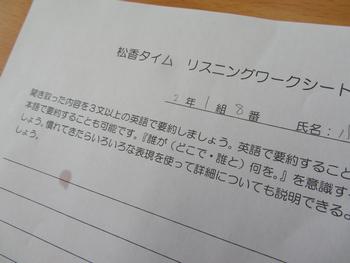 松香タイム リスニングワークシート
2年1組8番 氏名：
聞き取った内容を3文以上の英語で要約しましょう。英語で要約すること
本語で要約することも可能です。『誰が（どこで・誰と）何を。』を意識す
しょう。慣れてきたらいろいろな表現を使って詳細についても説明できるよ
しょう。